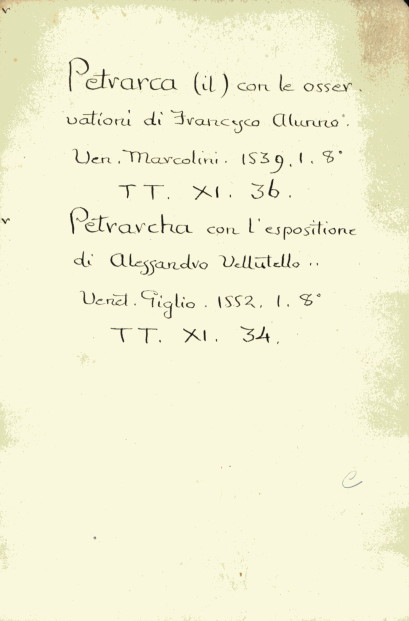 Petrarca (il) con le osser.
vationi di Francesco Alunno.
Ven. Marcolini. 1539. 1. 8°
TT. XI. 36.
Petrarcha con l'espositione
di Alessandro Vellutello..
Venet. Giglio. 1552. 1. 8°
TT. XI. 34.
C